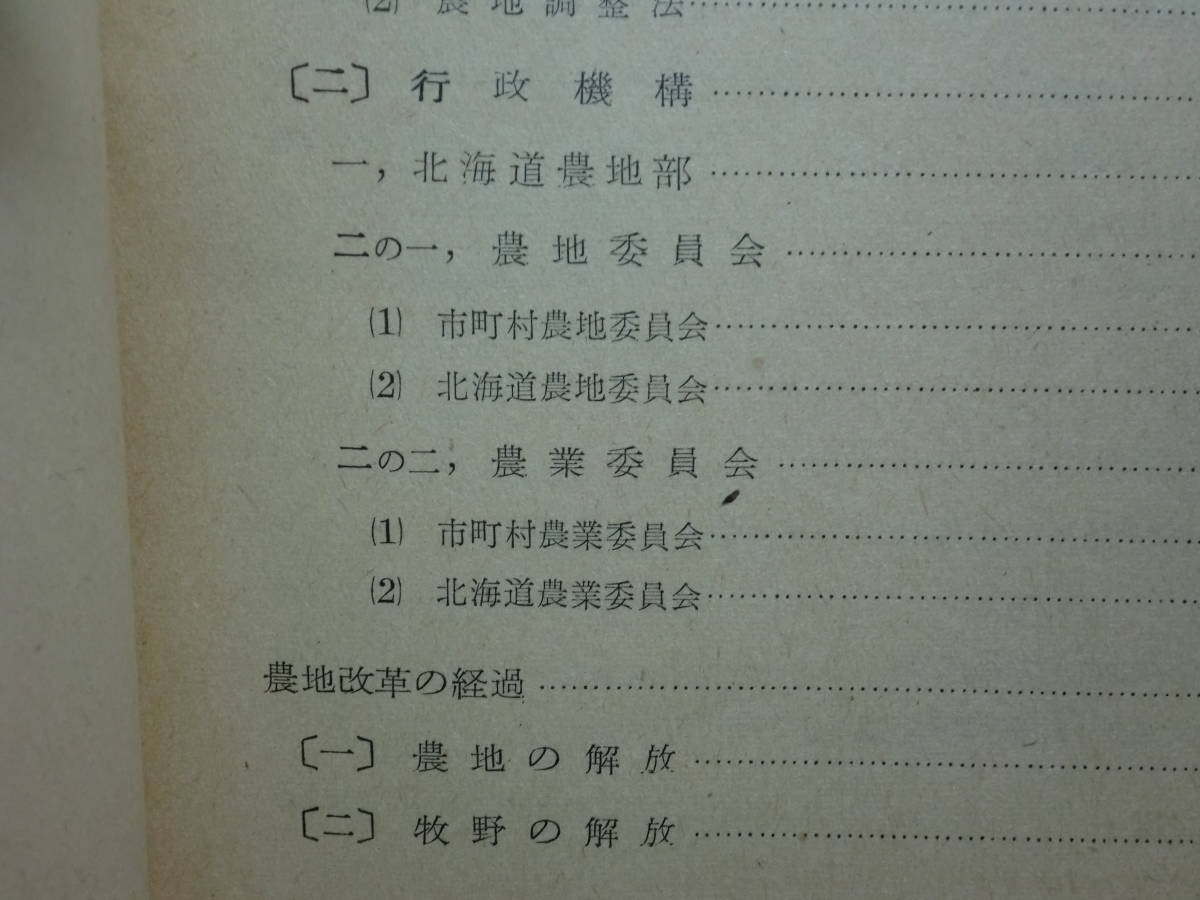 ⑵ 農地調整法
〔二〕行政機構
一，北海道農地部
二の一，農地委員会
⑴ 市町村農地委員会
⑵ 北海道農地委員会
二の二，農業委員会
⑴ 市町村農業委員会
⑵ 北海道農業委員会
農地改革の経過
〔一〕農地の解放
〔二〕牧野の解放